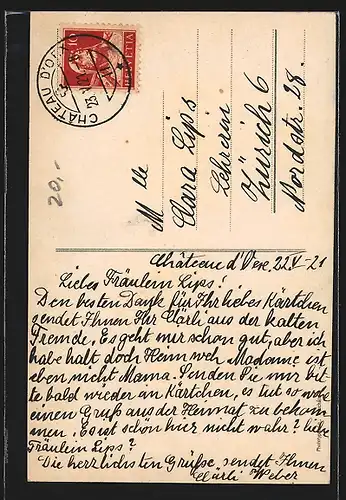 CHÂTEAU D'OEX
23.V.21
10
HELVETIA
20,-
Mlle
Clara Lips
Lehrerin
Zürich 6
Nordstr. 28.
Château d'Oex, 22.V-21
Liebes Fräulein Lips!
Den besten Dank für Ihr liebes Kärtchen
sendet Ihnen Ihr Clärli aus der kalten
Fremde. Es geht mir schon gut, aber ich
habe halt doch Heimweh Madame ist
eben nicht Mama. Senden Sie mir bit-
te bald wieder ein Kärtchen, es tut so wohl
einen Gruß aus der Heimat zu bekom-
men. Es ist schön hier nicht wahr? liebe
Fräulein Lips?
Die herzlichsten Grüße sendet Ihnen
Clärli Weber